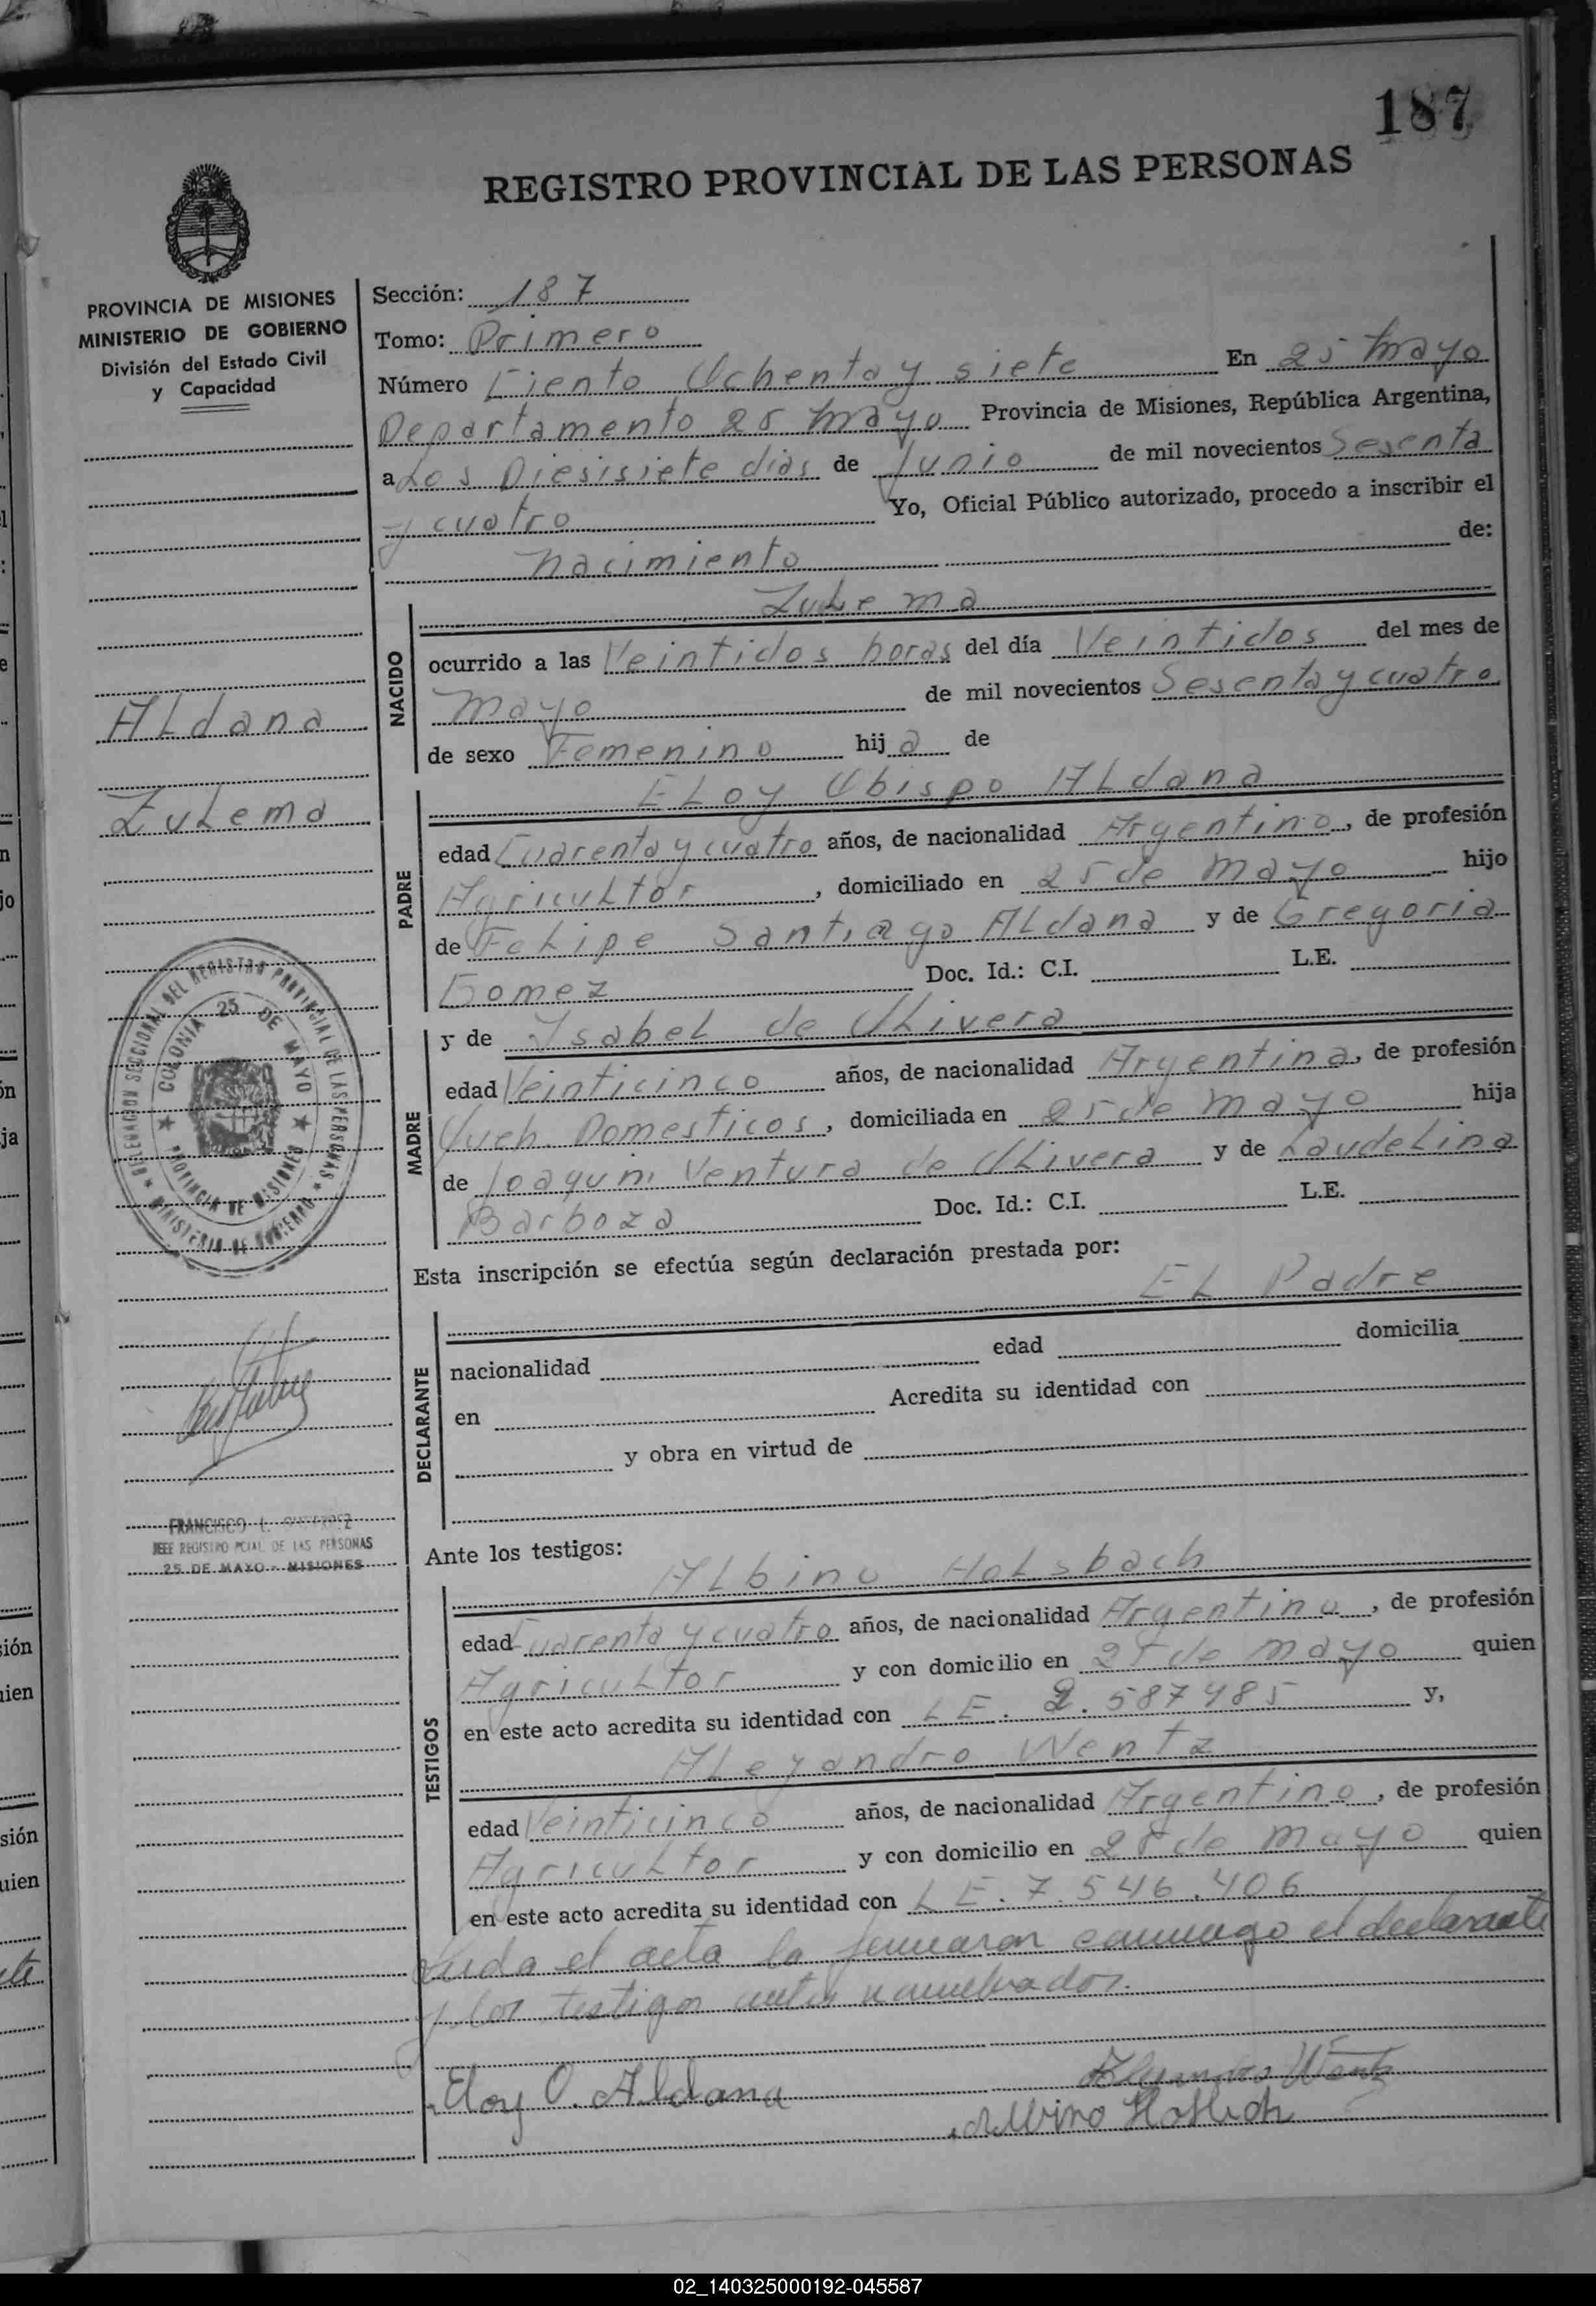 187
REGISTRO PROVINCIAL DE LAS PERSONAS
PROVINCIA DE MISIONES
MINISTERIO DE GOBIERNO
División del Estado Civil
y Capacidad
Aldana
Zulema
DELEGACION SECCIONAL DEL REGISTRO PROVINCIAL DE LAS PERSONAS ★ MINISTERIO DE GOBIERNO ★
COLONIA 25 DE MAYO ★ PROVINCIA DE MISIONES ★
FRANCISCO
JEFE REGISTRO PCIAL DE LAS PERSONAS
25 DE MAYO - MISIONES
Sección: 187
Tomo: Primero
Número Ciento Ochenta y siete En 25 Mayo
Departamento 25 Mayo Provincia de Misiones, República Argentina,
a Los Diesisiete dias de Junio de mil novecientos Sesenta
y cuatro Yo, Oficial Público autorizado, procedo a inscribir el
nacimiento de:
NACIDO
Zulema
ocurrido a las Veintidos horas del día Veintidos del mes de
Mayo de mil novecientos Sesenta y cuatro
de sexo Femenino hija de
PADRE
Eloy Obispo Aldana
edad Cuarenta y cuatro años, de nacionalidad Argentino, de profesión
Agricultor, domiciliado en 25 de Mayo hijo
de Felipe Santiago Aldana y de Gregoria
Gomez Doc. Id.: C.I. L.E.
MADRE
y de Ysabel de Olivera
edad Veinticinco años, de nacionalidad Argentina, de profesión
Queh. Domesticos, domiciliada en 25 de Mayo hija
de Joaquin Ventura de Olivera y de Laudelina
Barboza Doc. Id.: C.I. L.E.
Esta inscripción se efectúa según declaración prestada por:
DECLARANTE
El Padre
nacionalidad edad domicilia
en Acredita su identidad con
y obra en virtud de
Ante los testigos:
TESTIGOS
Albino Holsbach
edad Cuarenta y cuatro años, de nacionalidad Argentino, de profesión
Agricultor y con domicilio en 25 de Mayo quien
en este acto acredita su identidad con LE. 2.587485 y,
Aleyandro Wentz
edad Veinticinco años, de nacionalidad Argentino, de profesión
Agricultor y con domicilio en 25 de Mayo quien
en este acto acredita su identidad con LE. 7.546.406
Leida el acta la firmaron conmigo el declarante
y los testigos antes nombrados.
Eloy O. Aldana
Alejandro Wentz
Albino
02_140325000192-045587